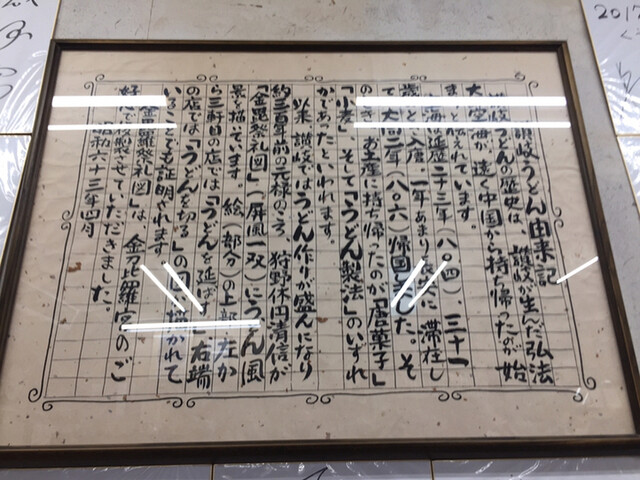 讃岐うどん由来記
讃岐うどんの歴史は、讃岐が生んだ弘法
大師空海が、遠く中国から持ち帰ったのが始
まりと伝えられています。
空海は延歴二十三年(八〇四)、三十一
歳で入唐、一年あまり長安に滞在し
て大同二年(八〇六)帰国しました。そ
のとき、お土産に持ち帰ったのが「唐菓子」
「小麦」そして「うどん製法」のいずれ
かであったといわれます。
以来、讃岐ではうどん作りが盛んになり
約三百年前の元禄のころ、狩野休円清信が
「金毘羅祭礼図」(屏風一双)にうどん風
景を描いています。絵(部分)の上部、左か
ら三軒目の店では「うどんを延ば 」右端
の店では「うどんを切る」の図が描かれて
いることでも証明されます。
「金毘羅祭礼図」は、金刀比羅宮のご
好意で複製させていただきました。
昭和六十三年四月
2017